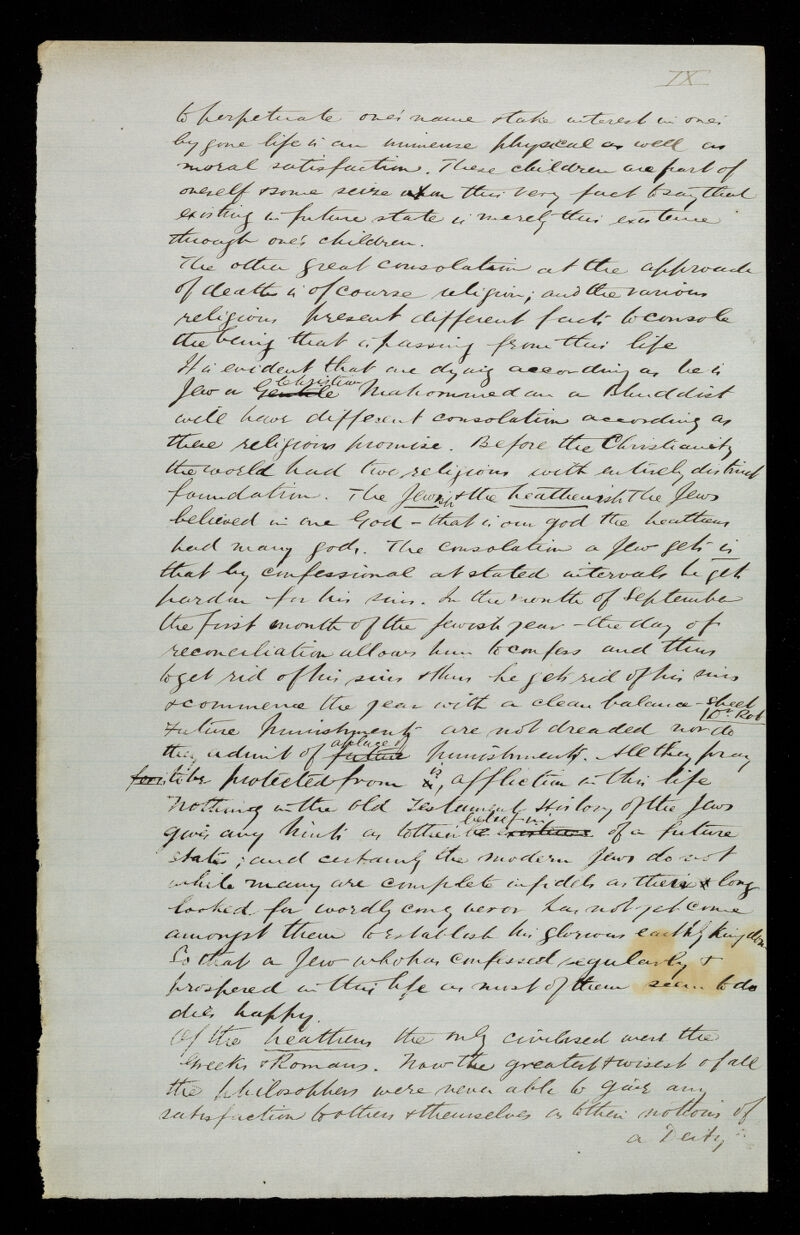 IX
to perpetuate one's name & take interest in one's
by gone life is an immense physical as well as
moral satisfaction. These children are part of
oneself & some seize upon this very fact to say that
existing in future state is merely this existence
through one's children.
The other great consolation at the approach
of death is of course religion; and the various
religions present different facts to console
the being that is passing from this life
It is evident that one dying according as he is
Christian
Jew a Gentile Mahommedan a Bhuddist
will have different consolation according as
there religions promise. Before the Christianity
the world had two religions with entirely distinct
foundation. The Jewish & the heathenish The Jews
believed in one God – that is our god the heathens
had many gods. The consolation a Jew gets is
that by confessional at stated intervals he gets
pardon for his sins. In the month of September
the first month of the Jewish year – the day of
reconciliation allows him to confess and thus
to get rid of his sins & thus he gets rid of his sins
& commence the year with a clean balance-sheet
Dr Rob
Future Punishments are not dreaded nor do
a place of
they admit of future punishments. All they pray
is
to be protected from affliction in this life
Nothing in the old Testament History of the Jews
belief in
gives any hints as to their existence of a future
state; and certainly the modern Jews do not
while many are complete infidels as their long
looked for wordly conqueror has not yet come
amongst them to establish his glorious earthly kingdom
So that a Jew who has confessed regularly &
prospered in this life as most of them seem to do
dies happy.
Of the heathens the only civilised were the
Greeks & Romans. Now the greatest & wisest of all
the philosophers were never able to give any
satisfaction to others & themselves as to their notions of
a Deity